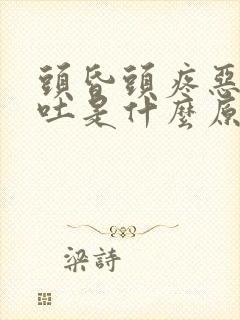 頭昏頭疼惡
吐是什麼原
梁詩